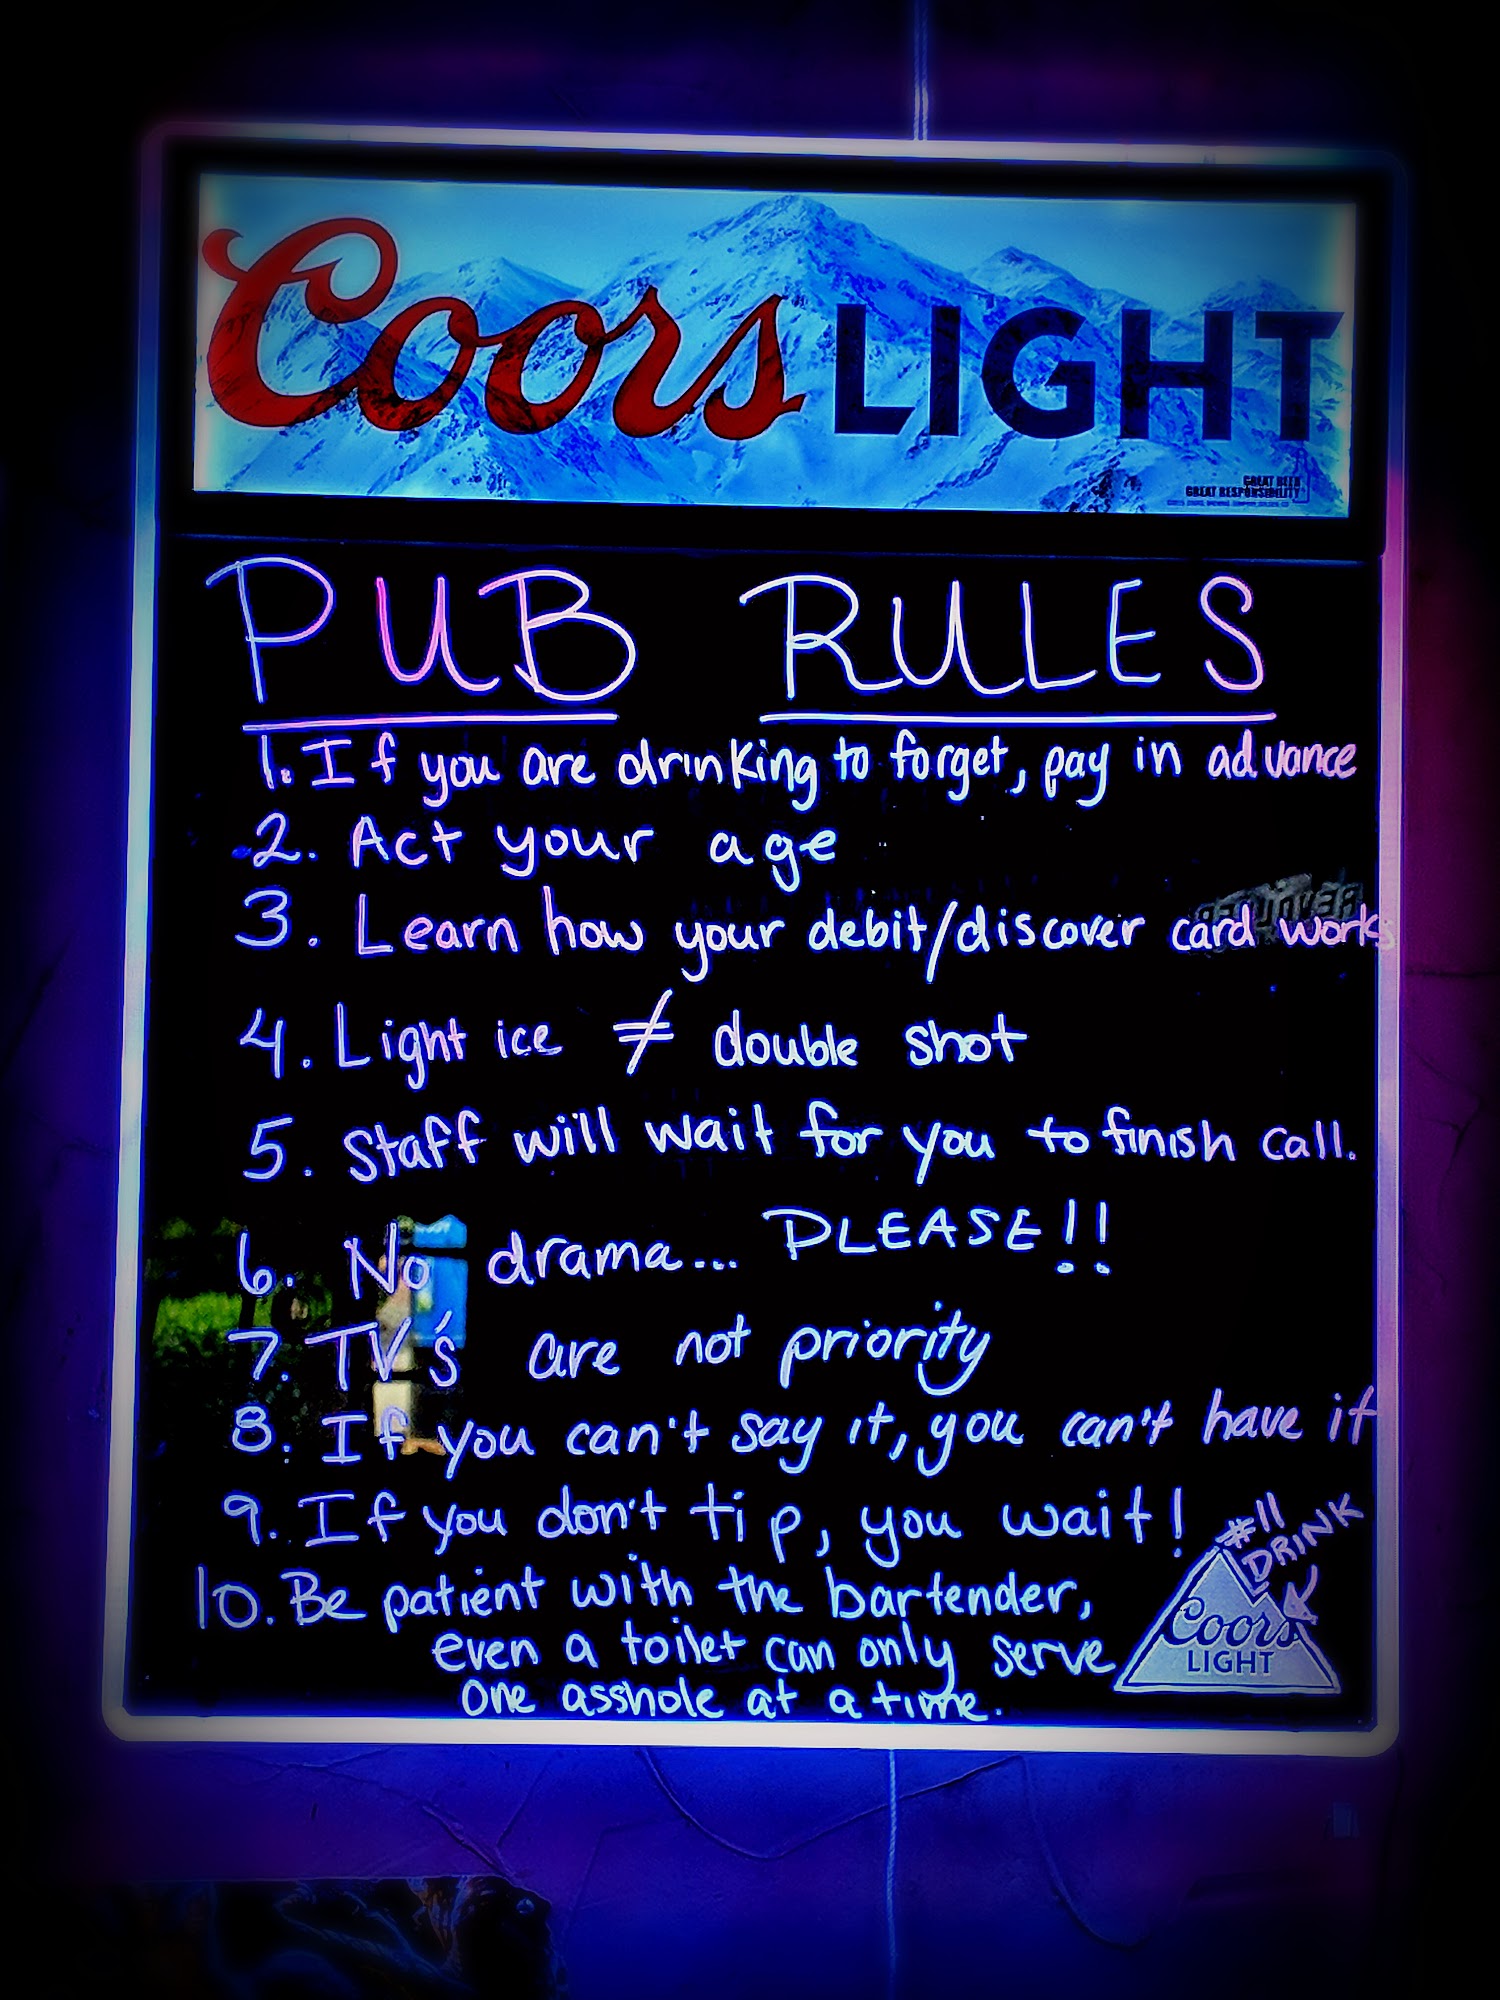 Coors LIGHT
GREAT BEER
GREAT RESPONSIBILITY
PUB RULES
1. If you are drinking to forget, pay in advance
2. Act your age
3. Learn how your debit/discover card works
4. Light ice ≠ double shot
5. Staff will wait for you to finish call.
6. No drama... PLEASE!!
7. TV's are not priority
8. If you can't say it, you can't have it
9. If you don't tip, you wait!
10. Be patient with the bartender,
even a toilet can only serve
one asshole at a time.
#11
DRINK
Coors
LIGHT